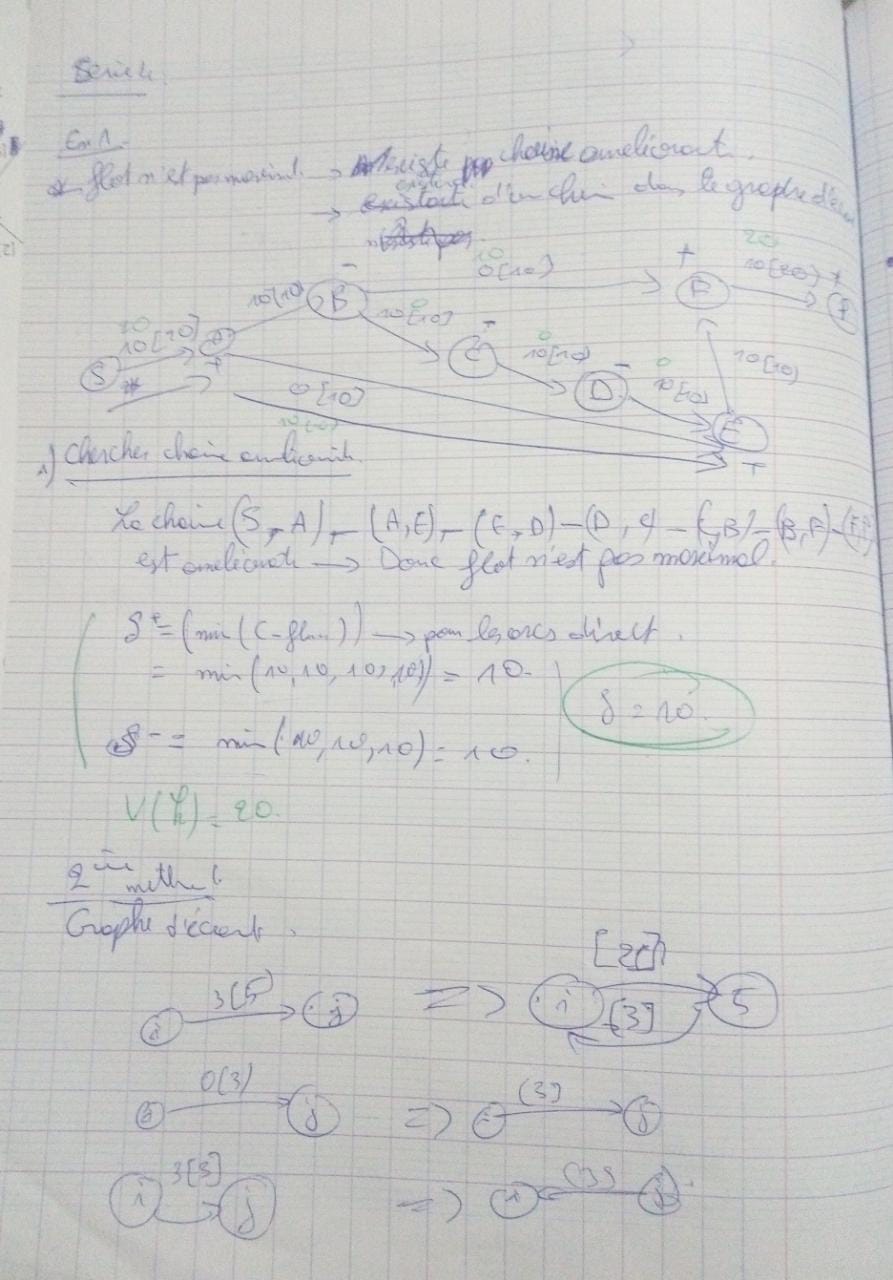 Serie 4
Ex 1
* flot n'est pas maximal → existe chaine améliorant.
→ existence d'un chemin dans le graphe d'écart
20
10[20]
10(10)
B
-
10
0[10]
+
F
20
10[20]
+
S
A
+
0
10[10]
-
C
0
10[10]
-
D
0
10[10]
10[10]
E
+
0[10]
*
1) Chercher chaine améliorante.
La chaine (S, A) - (A, E) - (E, D) - (D, C) - (C, B) - (B, F) - (F,
est améliorante → Donc flot n'est pas maximal.
δ+ = (min (C - flux)) → pour les arcs direct.
= min(10, 10, 10, 10) = 10.
δ = 10.
δ- = min(10, 10, 10) = 10.
V(f) = 20.
2ème méthode
Graphe d'écart.
i 3[5] j => i [2] [3] 5
i 0(3) j => i (3) j
i 3[3] j => i (3) j